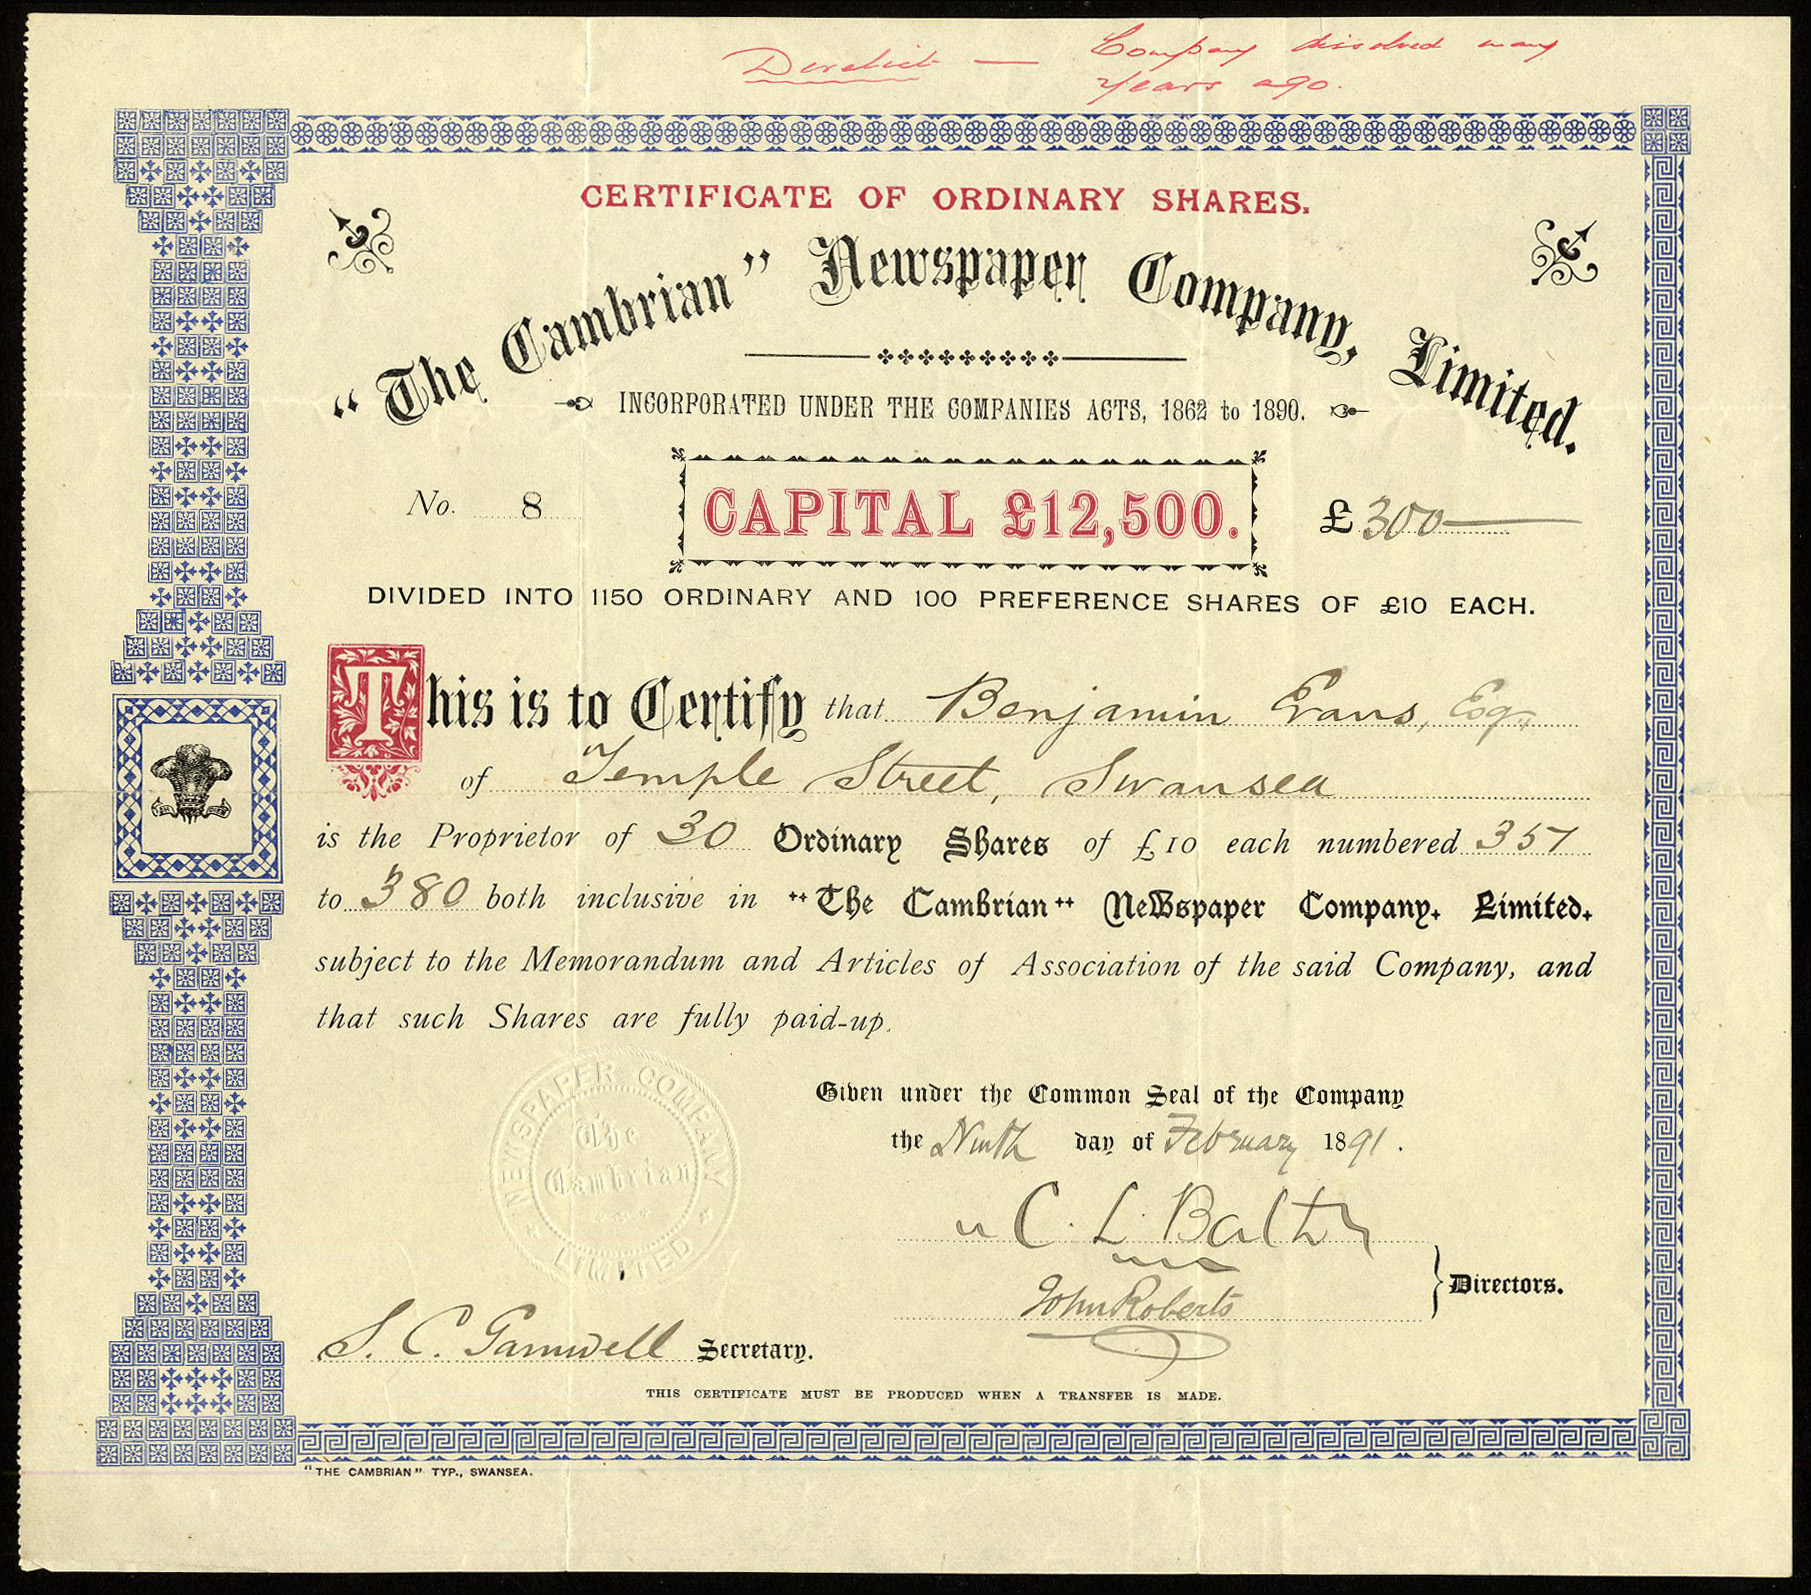 Derelict — Company dissolved many
years ago.
CERTIFICATE OF ORDINARY SHARES.
"The Cambrian" Newspaper Company, Limited.
INCORPORATED UNDER THE COMPANIES ACTS, 1862 to 1890.
No. 8 CAPITAL £12,500. £300
DIVIDED INTO 1150 ORDINARY AND 100 PREFERENCE SHARES OF £10 EACH.
This is to Certify that Benjamin Evans, Esq.,
of Temple Street, Swansea
is the Proprietor of 30 Ordinary Shares of £10 each numbered 351
to 380 both inclusive in "The Cambrian" Newspaper Company, Limited,
subject to the Memorandum and Articles of Association of the said Company, and
that such Shares are fully paid-up.
NEWSPAPER COMPANY
The
Cambrian
LIMITED
Given under the Common Seal of the Company
the Ninth day of February 1891.
C. L. Bath
John Roberts
Directors.
S. C. Gamwell Secretary.
THIS CERTIFICATE MUST BE PRODUCED WHEN A TRANSFER IS MADE.
"THE CAMBRIAN" TYP., SWANSEA.